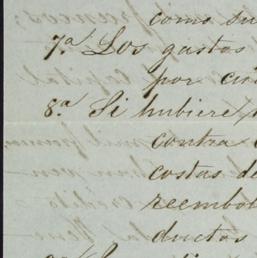 como su
7.ª Los gastos
por cin
8.ª Si hubiere
contra
costas de
reembol
ductos